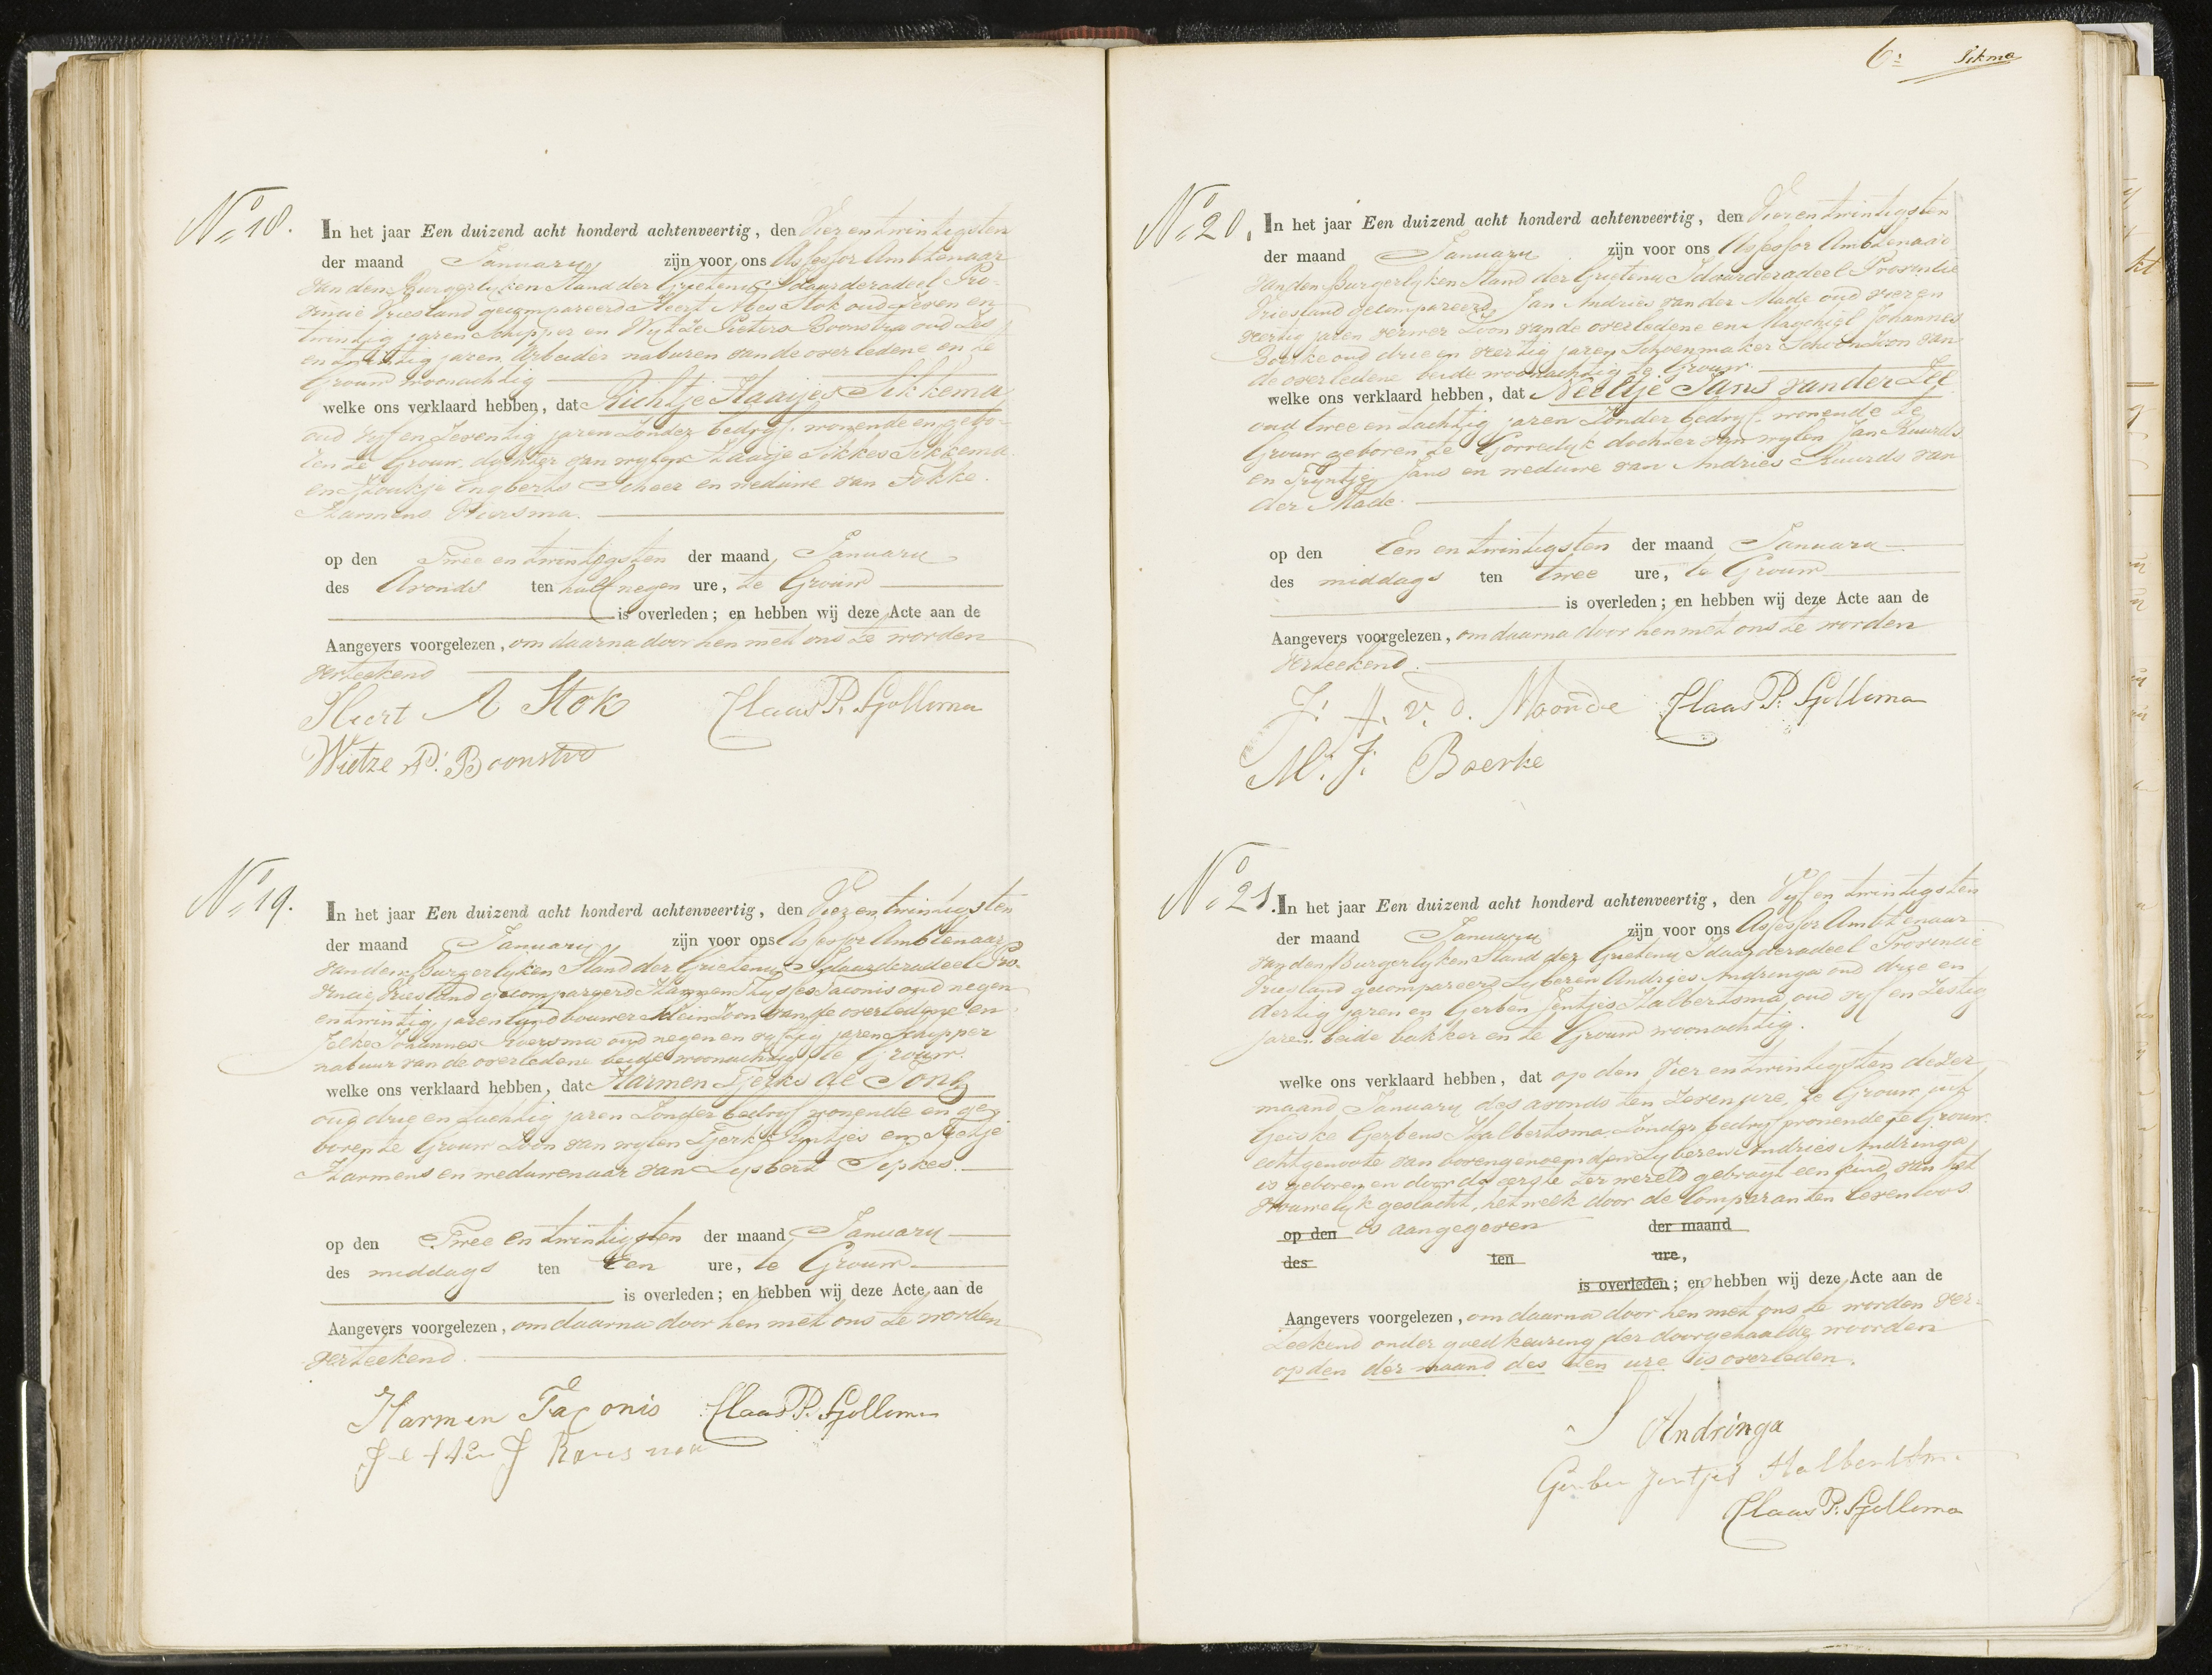 No 18.
In het jaar Een duizend acht honderd achtenveertig, den Vierentwintigsten
der maand January zijn voor ons Assessor Ambtenaar
van den Burgerlyken Stand der Grieteny Idaarderadeel Pro-
vincie Vriesland gecompareerd Sluert Abes Stok oud zeven en
twintig jaren Schipper en Wytze Pieters Boonstra oud zes
en jaren Arbeider naburen van de overledene en te
Grouw woonachtig
welke ons verklaard hebben, dat Richtje Haaijes Sikkema
oud vyf en zeventig jaren zonder bedryf wonende en gebo-
ren te Grouw dochter van wylen Haaije Sikkes Sikkema
en Froukje Engberts Scheer en weduwe van Fokke
Harmens Wiersma.
op den Twee en twintigsten der maand January
des Avonds ten half negen ure, te Grouw
is overleden; en hebben wij deze Acte aan de
Aangevers voorgelezen, om daarna door hen met ons te worden
verteekend
Sluert A Stok Claas P. Gjollema
Wietze P. Boonstra
No 19.
In het jaar Een duizend acht honderd achtenveertig, den Vierentwintigsten
der maand January zijn voor ons Assessor Ambtenaar
van den Burgerlyken Stand der Grieteny Idaarderadeel Pro-
vincie Vriesland gecompareerd Harmen Taconis oud negen
en twintig jaren landbouwer Kleinzoon van de overledene en
Jelke Johannes oud negen en vyftig jaren Schipper
nabuur van de overledene beide woonachtig te Grouw.
welke ons verklaard hebben, dat Harmen Tjerks de Jong
oud drie en tachtig jaren zonder bedryf wonende en ge-
boren te Grouw Zoon van wylen Tjerk Ryntjes en
Harmens en weduwenaar van Lysbert Sipkes.
op den Twee en twintigsten der maand January
des middags ten Een ure, te Grouw
is overleden; en hebben wij deze Acte aan de
Aangevers voorgelezen, om daarna door hen met ons te worden
verteekend.
Harmen Taconis Claas P. Gjollema
No 20.
In het jaar Een duizend acht honderd achtenveertig, den Vierentwintigsten
der maand January zijn voor ons Assessor Ambtenaar
van den Burgerlyken Stand der Grieteny Idaarderadeel Provintie
Vriesland gecompareerd Jan Andries van der Made oud vier en
veertig jaren verwer Zoon van de overledene en Machiel Johannes
Boerke oud drie en veertig jaren Schoenmaker Schoonzoon van
de overledene beide woonachtig te Grouw
welke ons verklaard hebben, dat Neeltje Jans van der Zee
oud twee en tachtig jaren zonder bedryf wonende te
Grouw geboren te Gorredyk dochter van wylen Jan Ruurds
en Tryntje Jans en weduwe van Andries Ruurds van
der Made.
op den Een en twintigsten der maand January
des middags ten twee ure, te Grouw
is overleden; en hebben wij deze Acte aan de
Aangevers voorgelezen, om daarna door hen met ons te worden
verteekend.
J. A. v. d. Maade Claas P. Gjollema
M. J. Boerke
No 21.
In het jaar Een duizend acht honderd achtenveertig, den Vyf en twintigsten
der maand January zijn voor ons Assessor Ambtenaar
van den Burgerlyken Stand der Grieteny Idaarderadeel Provincie
Vriesland gecompareerd Lyberen Andries Andringa oud drie en
dertig jaren en Gerben Jentjes Halbertsma, oud vyf en zestig
jaren beide bakker en te Grouw woonachtig.
welke ons verklaard hebben, dat op den Vier en twintigsten dezer
maand January des avonds ten zeven ure, te Grouw uit
Geiske Gerbens Halbertsma zonder bedryf wonende te Grouw
echtgenoote van bovengenoemden Lyberen Andries Andringa
is geboren en door de eerste ter wereld gebragt een kind van het
vrouwelyk geslacht, hetwelk door de Comparanten levenloos
op den is aangegeven der maand
des ten ure,
is overleden; en hebben wij deze Acte aan de
Aangevers voorgelezen, om daarna door hen met ons te worden ver-
teekend onder goedkeuring der doorgehaalde woorden
op den der maand des ten ure is overleden.
Andringa
Gerben Jentjes Halbertsma
Claas P. Gjollema